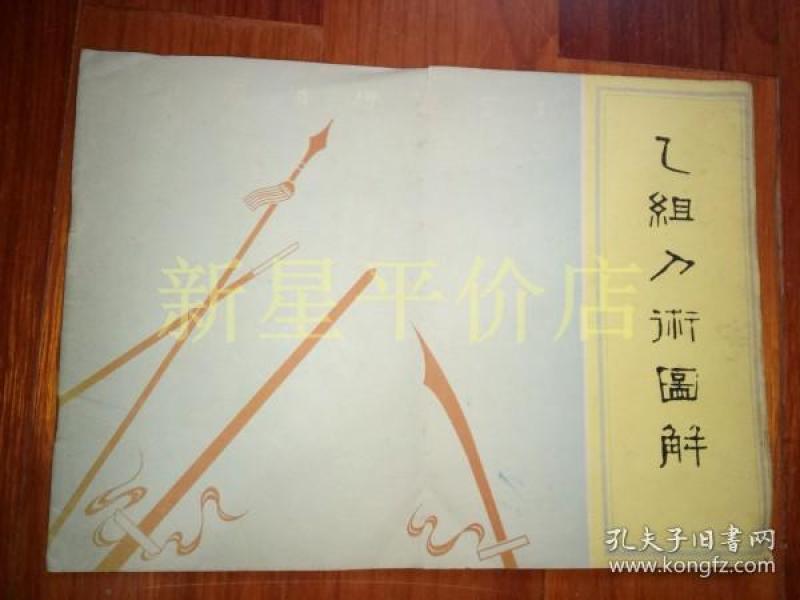 乙組刀術圖解
新星平价店
孔夫子旧书网
www.kongfz.com